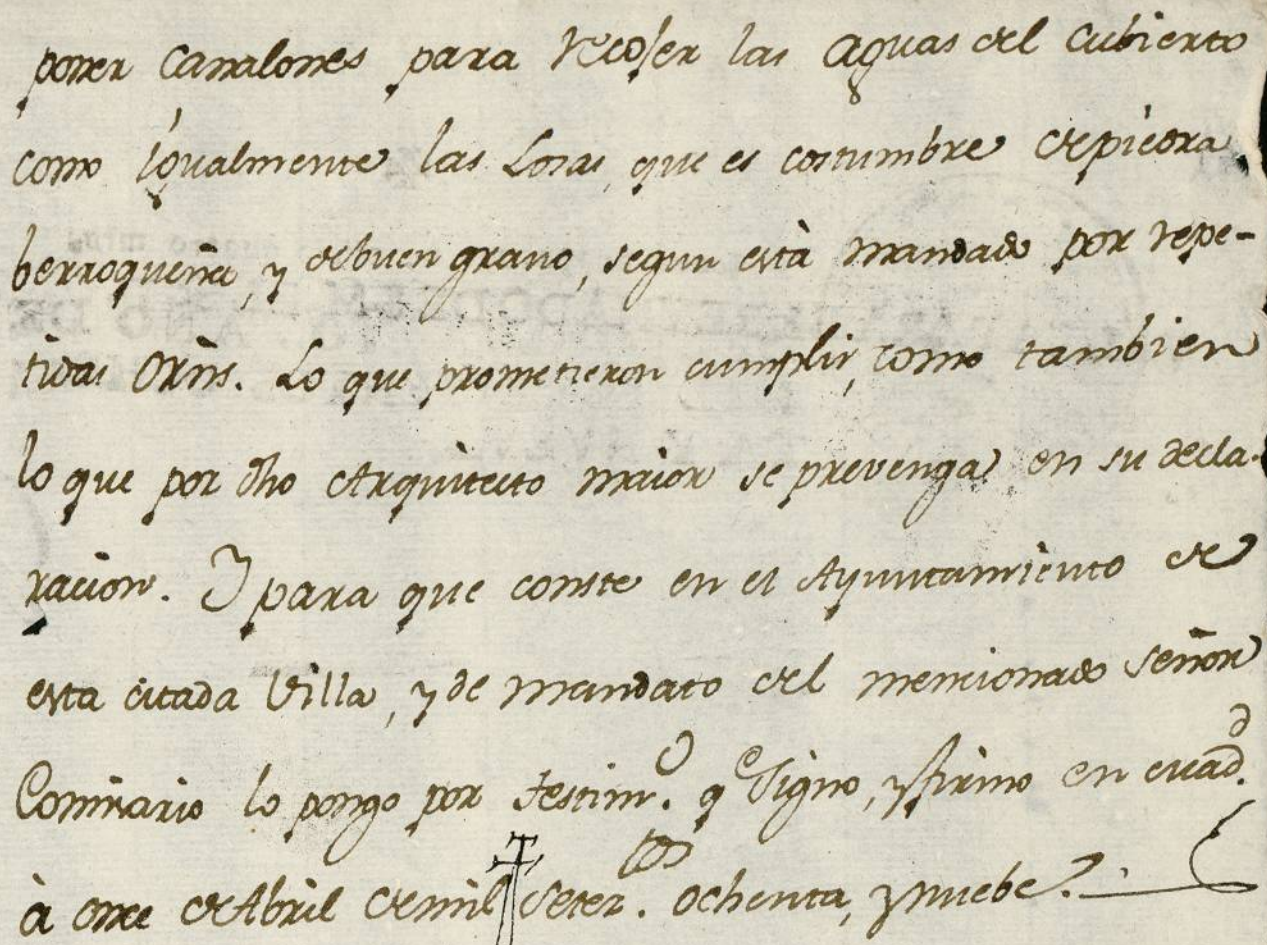 poner Canalones para recojer las aguas del Cubierto
como igualmente las Losas, que es costumbre de piedra
berroqueña, y de buen grano, segun està mandado por repe-
tidas Orñs. Lo que prometieron cumplir, como tambien
lo que por dho Arquitecto maior se prevenga en su decla-
racion. Y para que conste en el Ayuntamiento de
esta citada Villa, y de mandato del mencionado Señor
Comisario lo pongo por testim.º q.e Signo, y firmo en ella d.
à once de Abril de mil Setez.tos ochenta, y nuebe.